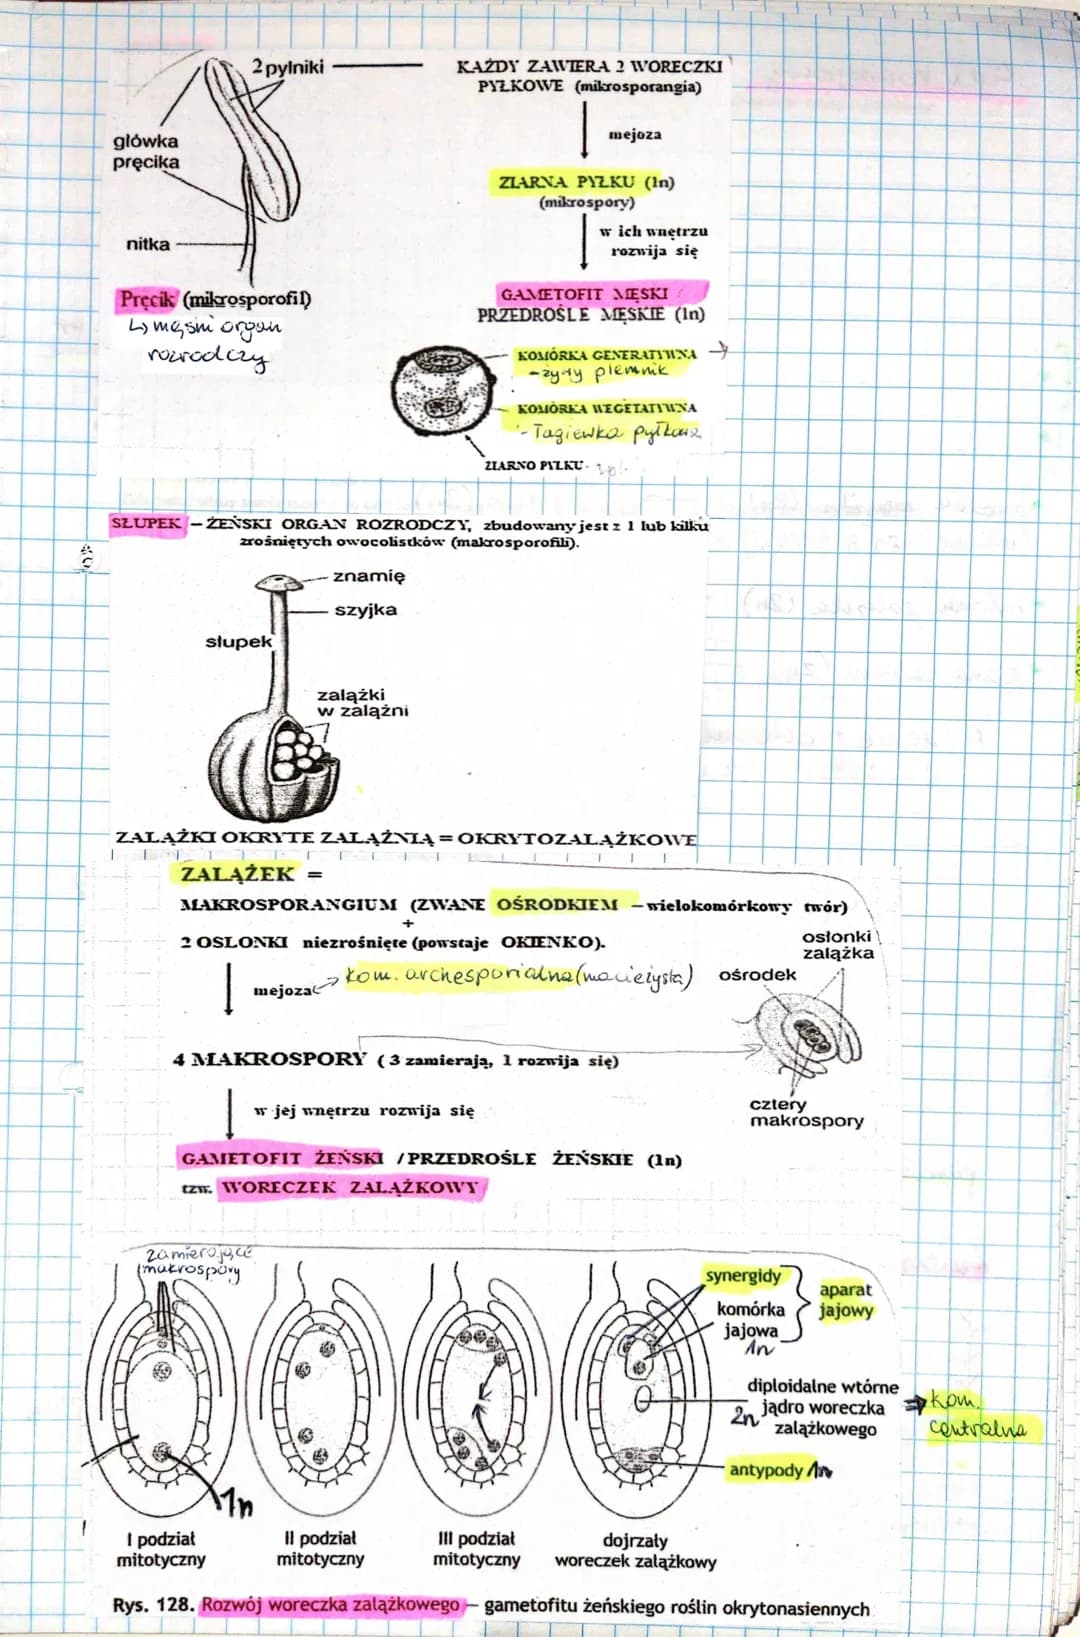 2 pylniki
KAŻDY ZAWIERA 2 WORECZKI
PYŁKOWE (mikrosporangia)
główka
pręcika
mejoza
ZIARNA PYŁKU (1n)
(mikrospory)
nitka
w ich wnętrzu
rozwija się
Pręcik (mikrosporofil)
↳ męski organ
rozrodczy
GAMETOFIT MĘSKI
PRZEDROŚLE MĘSKIE (1n)
KOMÓRKA GENERATYWNA →
plemnik
KOMÓRKA WEGETATYWNA
- Łagiewka pyłkowa
ZIARNO PYŁKU
SŁUPEK – ŻEŃSKI ORGAN ROZRODCZY, zbudowany jest z 1 lub kilku
zrośniętych owocolistków (makrosporofili).
znamię
szyjka
słupek
zalążki
w zalążni
ZALĄŻKI OKRYTE ZALĄŻNIĄ = OKRYTOZALĄŻKOWE
ZALĄŻEK =
MAKROSPORANGIUM (ZWANE OŚRODKIEM – wielokomórkowy twór)
+
2 OSŁONKI niezrośnięte (powstaje OKIENKO).
osłonki
zalążka
ośrodek
kom. archesporialna (macierzysta)
mejoza
4 MAKROSPORY ( 3 zamierają, 1 rozwija się)
cztery
makrospory
w jej wnętrzu rozwija się
GAMETOFIT ŻEŃSKI / PRZEDROŚLE ŻEŃSKIE (1n)
tzw. WORECZEK ZALĄŻKOWY
zamierające
makrospory
synergidy
aparat
jajowy
komórka
jajowa
1n
diploidalne wtórne
jądro woreczka
zalążkowego
2n
⇒ kom.
centralna
antypody 1n
1n
I podział
mitotyczny
II podział
mitotyczny
III podział
mitotyczny
dojrzały
woreczek zalążkowy
Rys. 128. Rozwój woreczka zalążkowego – gametofitu żeńskiego roślin okrytonasiennych